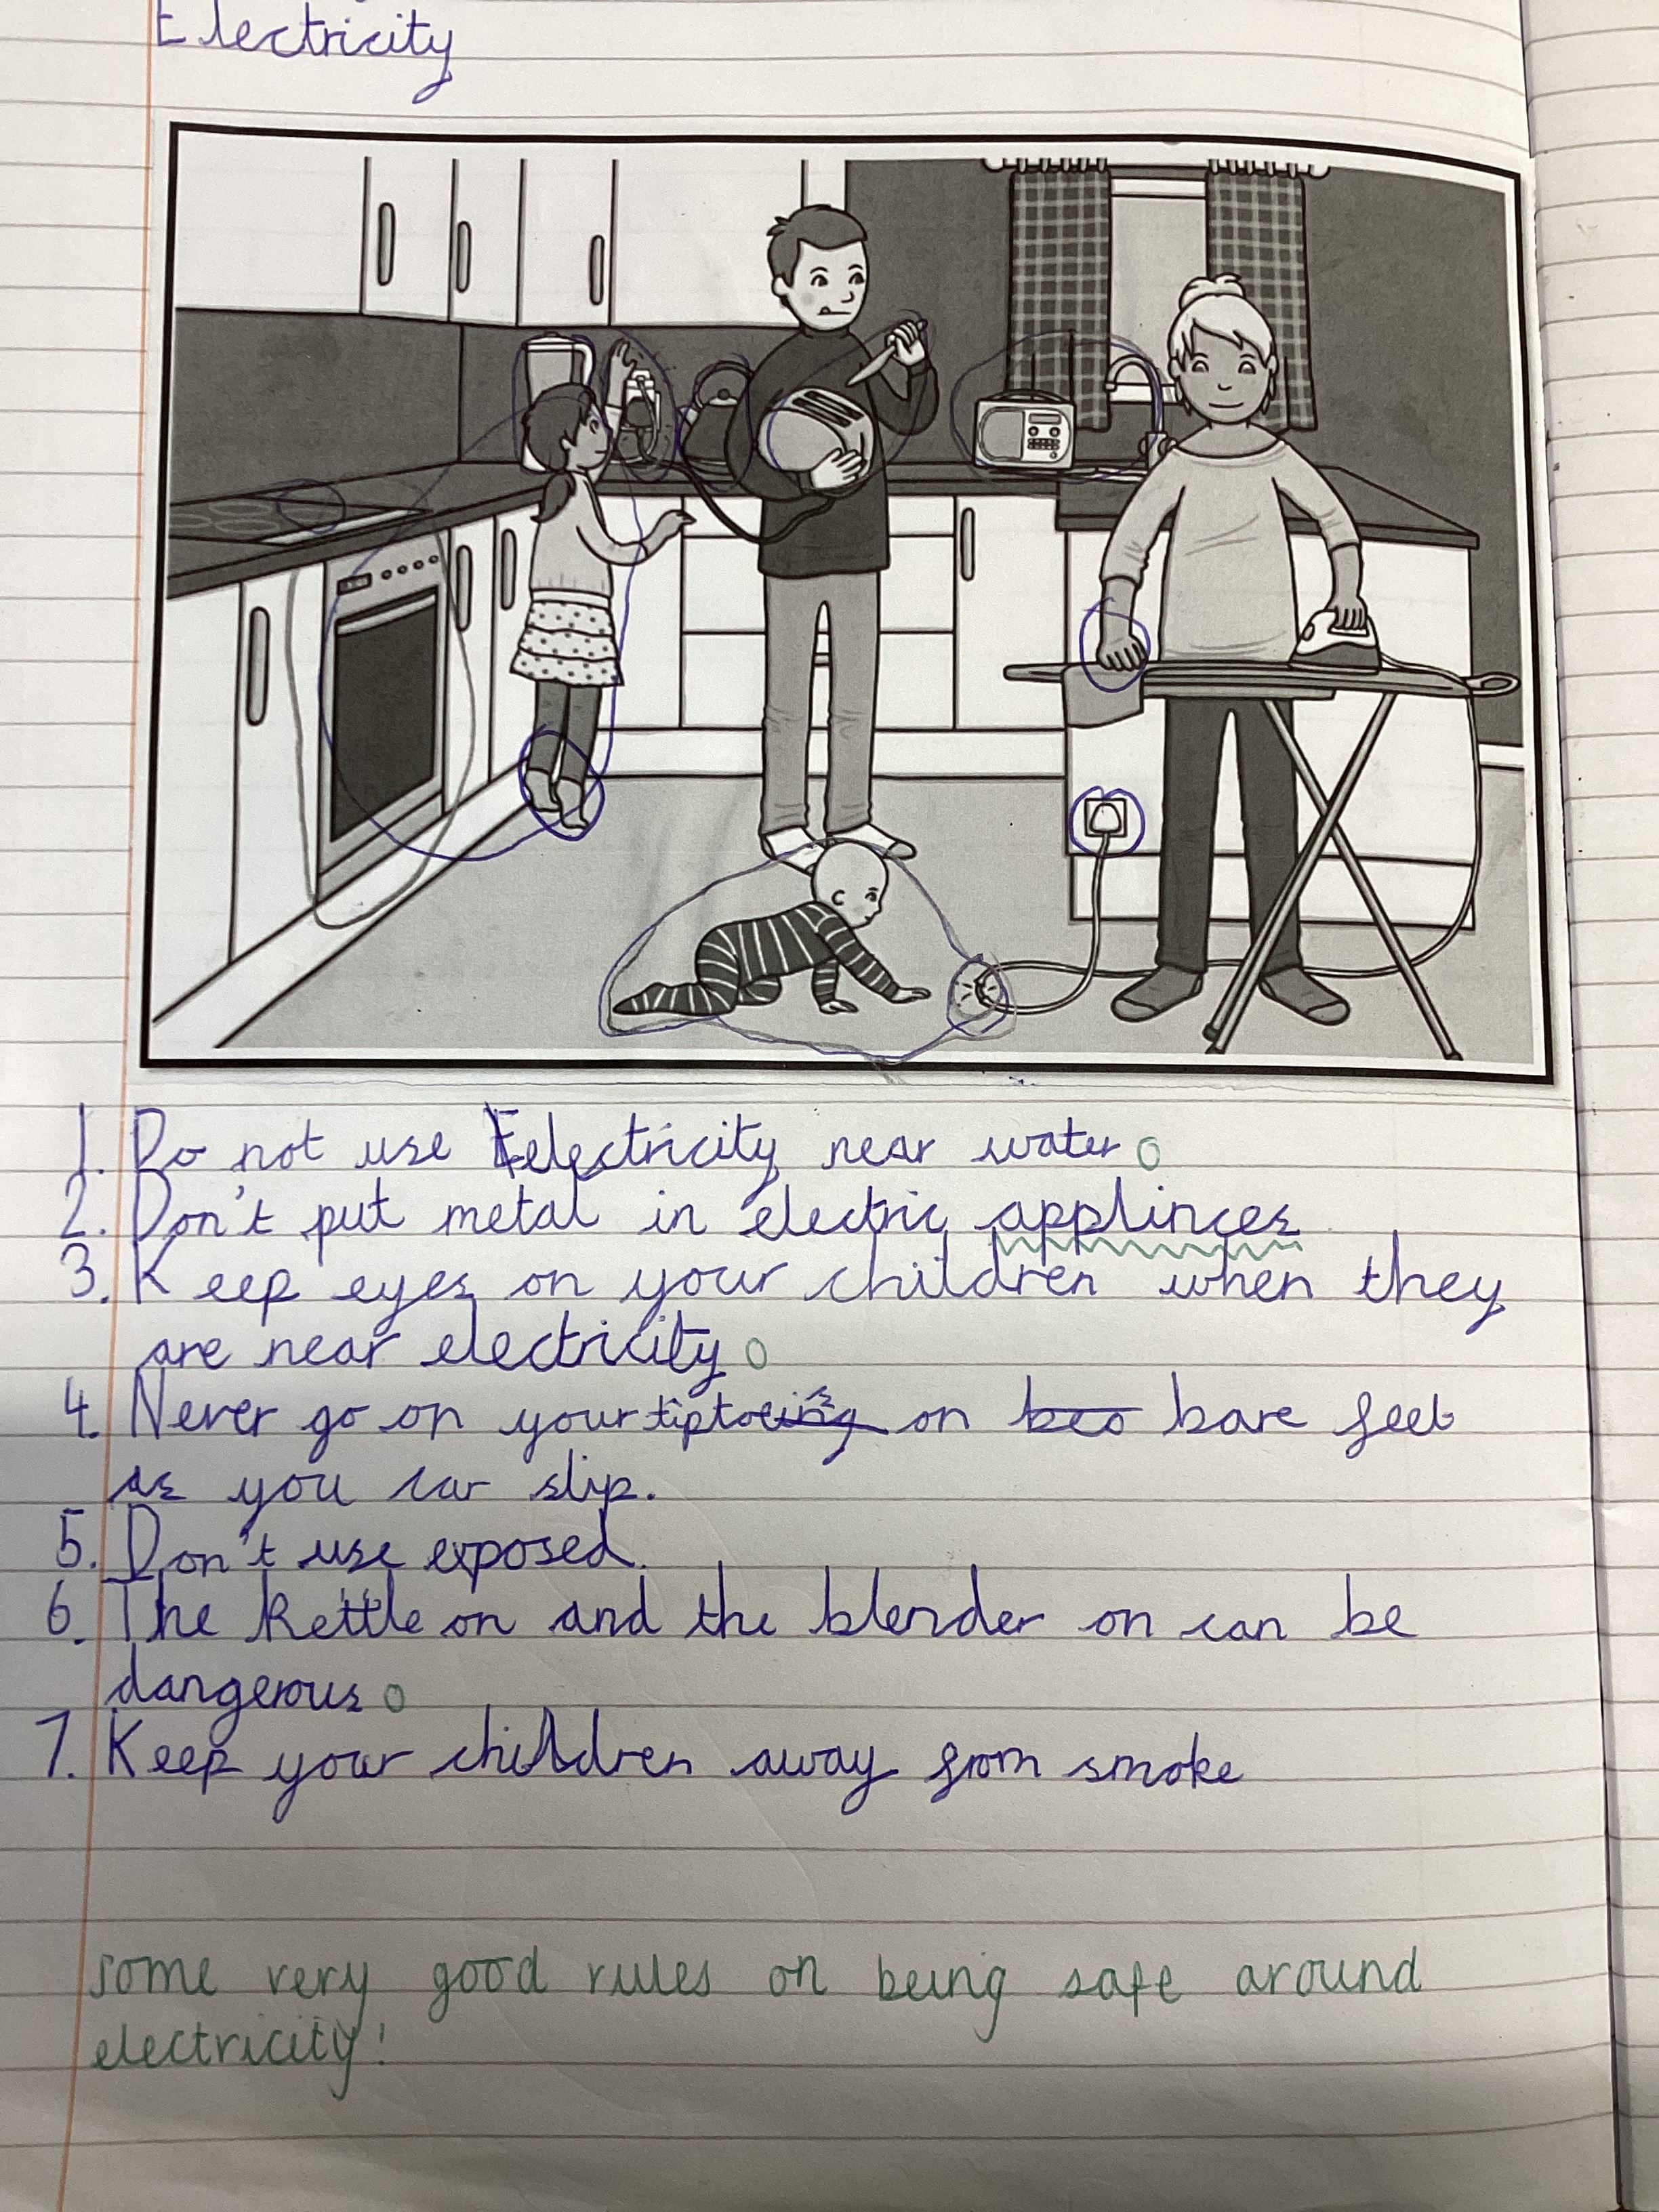 Electricity
1. Do not use electricity near water.
2. Don't put metal in electric applinces
3. Keep eyes on your children when they
are near electricity.
4. Never go on your tiptoes on bare feet
as you can slip.
5. Don't use exposed.
6. The kettle on and the blender on can be
dangerous.
7. Keep your children away from smoke
some very good rules on being safe around
electricity!